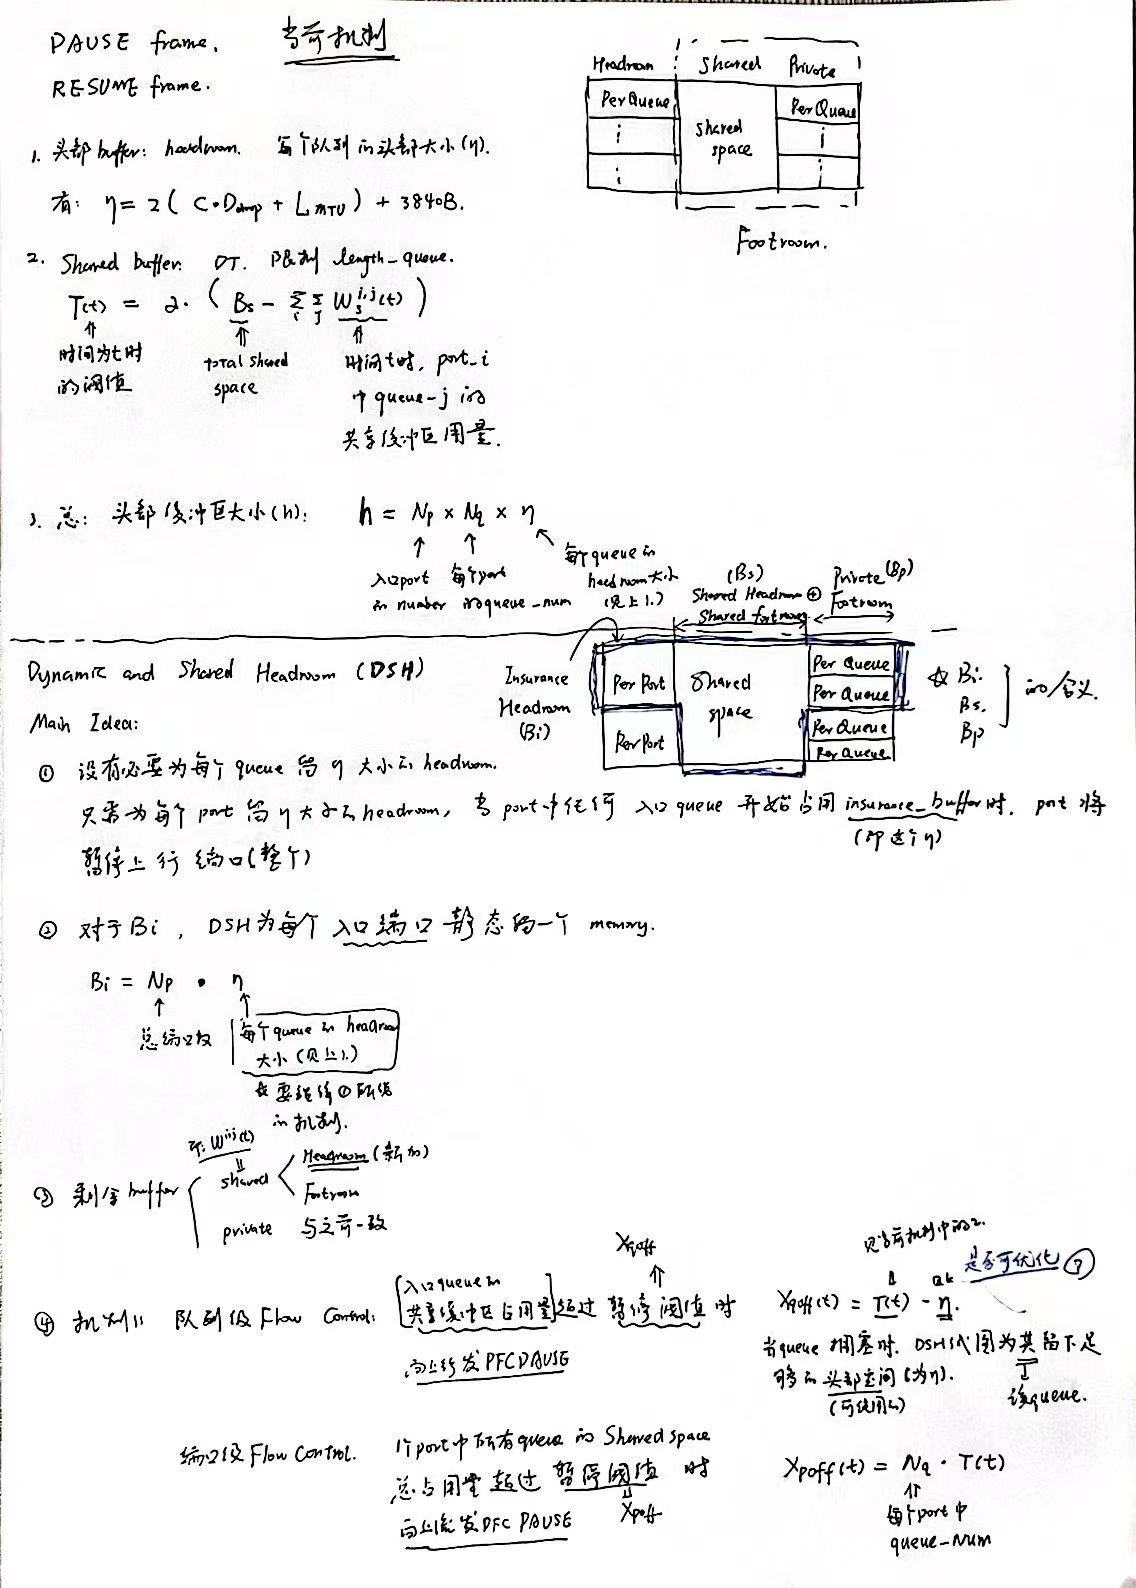 PAUSE frame.
当前机制
RESUME frame.
Headroom Shared Private
Per Queue
Shared space
Per Queue
Footroom.
1. 头部buffer: headroom. 每个队列的头部大小(η).
有: η = 2( C·Dprop + LMTU ) + 3840B.
2. Shared buffer: DT. 限制 length_queue.
T(t) = α·( Bs - Σi Σj Ws^i,j(t) )
时间为t时
的阈值
total shared
space
时间t时, port_i
中queue-j的
共享缓冲区用量.
3. 总: 头部缓冲区大小(h): h = Np × Nq × η
入口port
的number
每个port
的queue_num
每个queue的
headroom大小
(见上1.)
(Bs)
Shared Headroom ⊕
Shared footroom
Private(Bp)
Footroom
Dynamic and Shared Headroom (DSH)
Insurance
Headroom
(Bi)
Per Port
Per Port
Shared
space
Per Queue
Per Queue
Per Queue
Per Queue
☆ Bi.
Bs.
Bp
的含义.
Main Idea:
① 没有必要为每个queue留η大小的headroom.
只需为每个port留η大小的headroom, 当port中任何入口queue开始占用insurance_buffer时, port将
(即这个η)
暂停上行端口(整个)
② 对于Bi, DSH为每个入口端口静态留一个memory.
Bi = Np · η
总端口数
每个queue的headroom
大小(见上1.)
☆要结合①所给
的机制.
③ 剩余buffer
有: W^i,j(t)
shared
Headroom(新加)
Footroom
private 与之前一致
④ 机制1: 队列级Flow Control: 入口queue的
共享缓冲区占用量 超过 暂停阈值 时
Xqoff
向上游发PFC PAUSE
见当前机制中的2.
是否可优化?
Xqoff(t) = T(t) - η.
当queue拥塞时. DSH试图为其留下足
够的头部空间(为η).
(可使用的)
该queue.
端口级Flow Control. 1个port中所有queue的Shared space
总占用量 超过 暂停阈值 时
Xpoff
向上游发PFC PAUSE
Xpoff(t) = Nq · T(t)
每个port中
queue-num